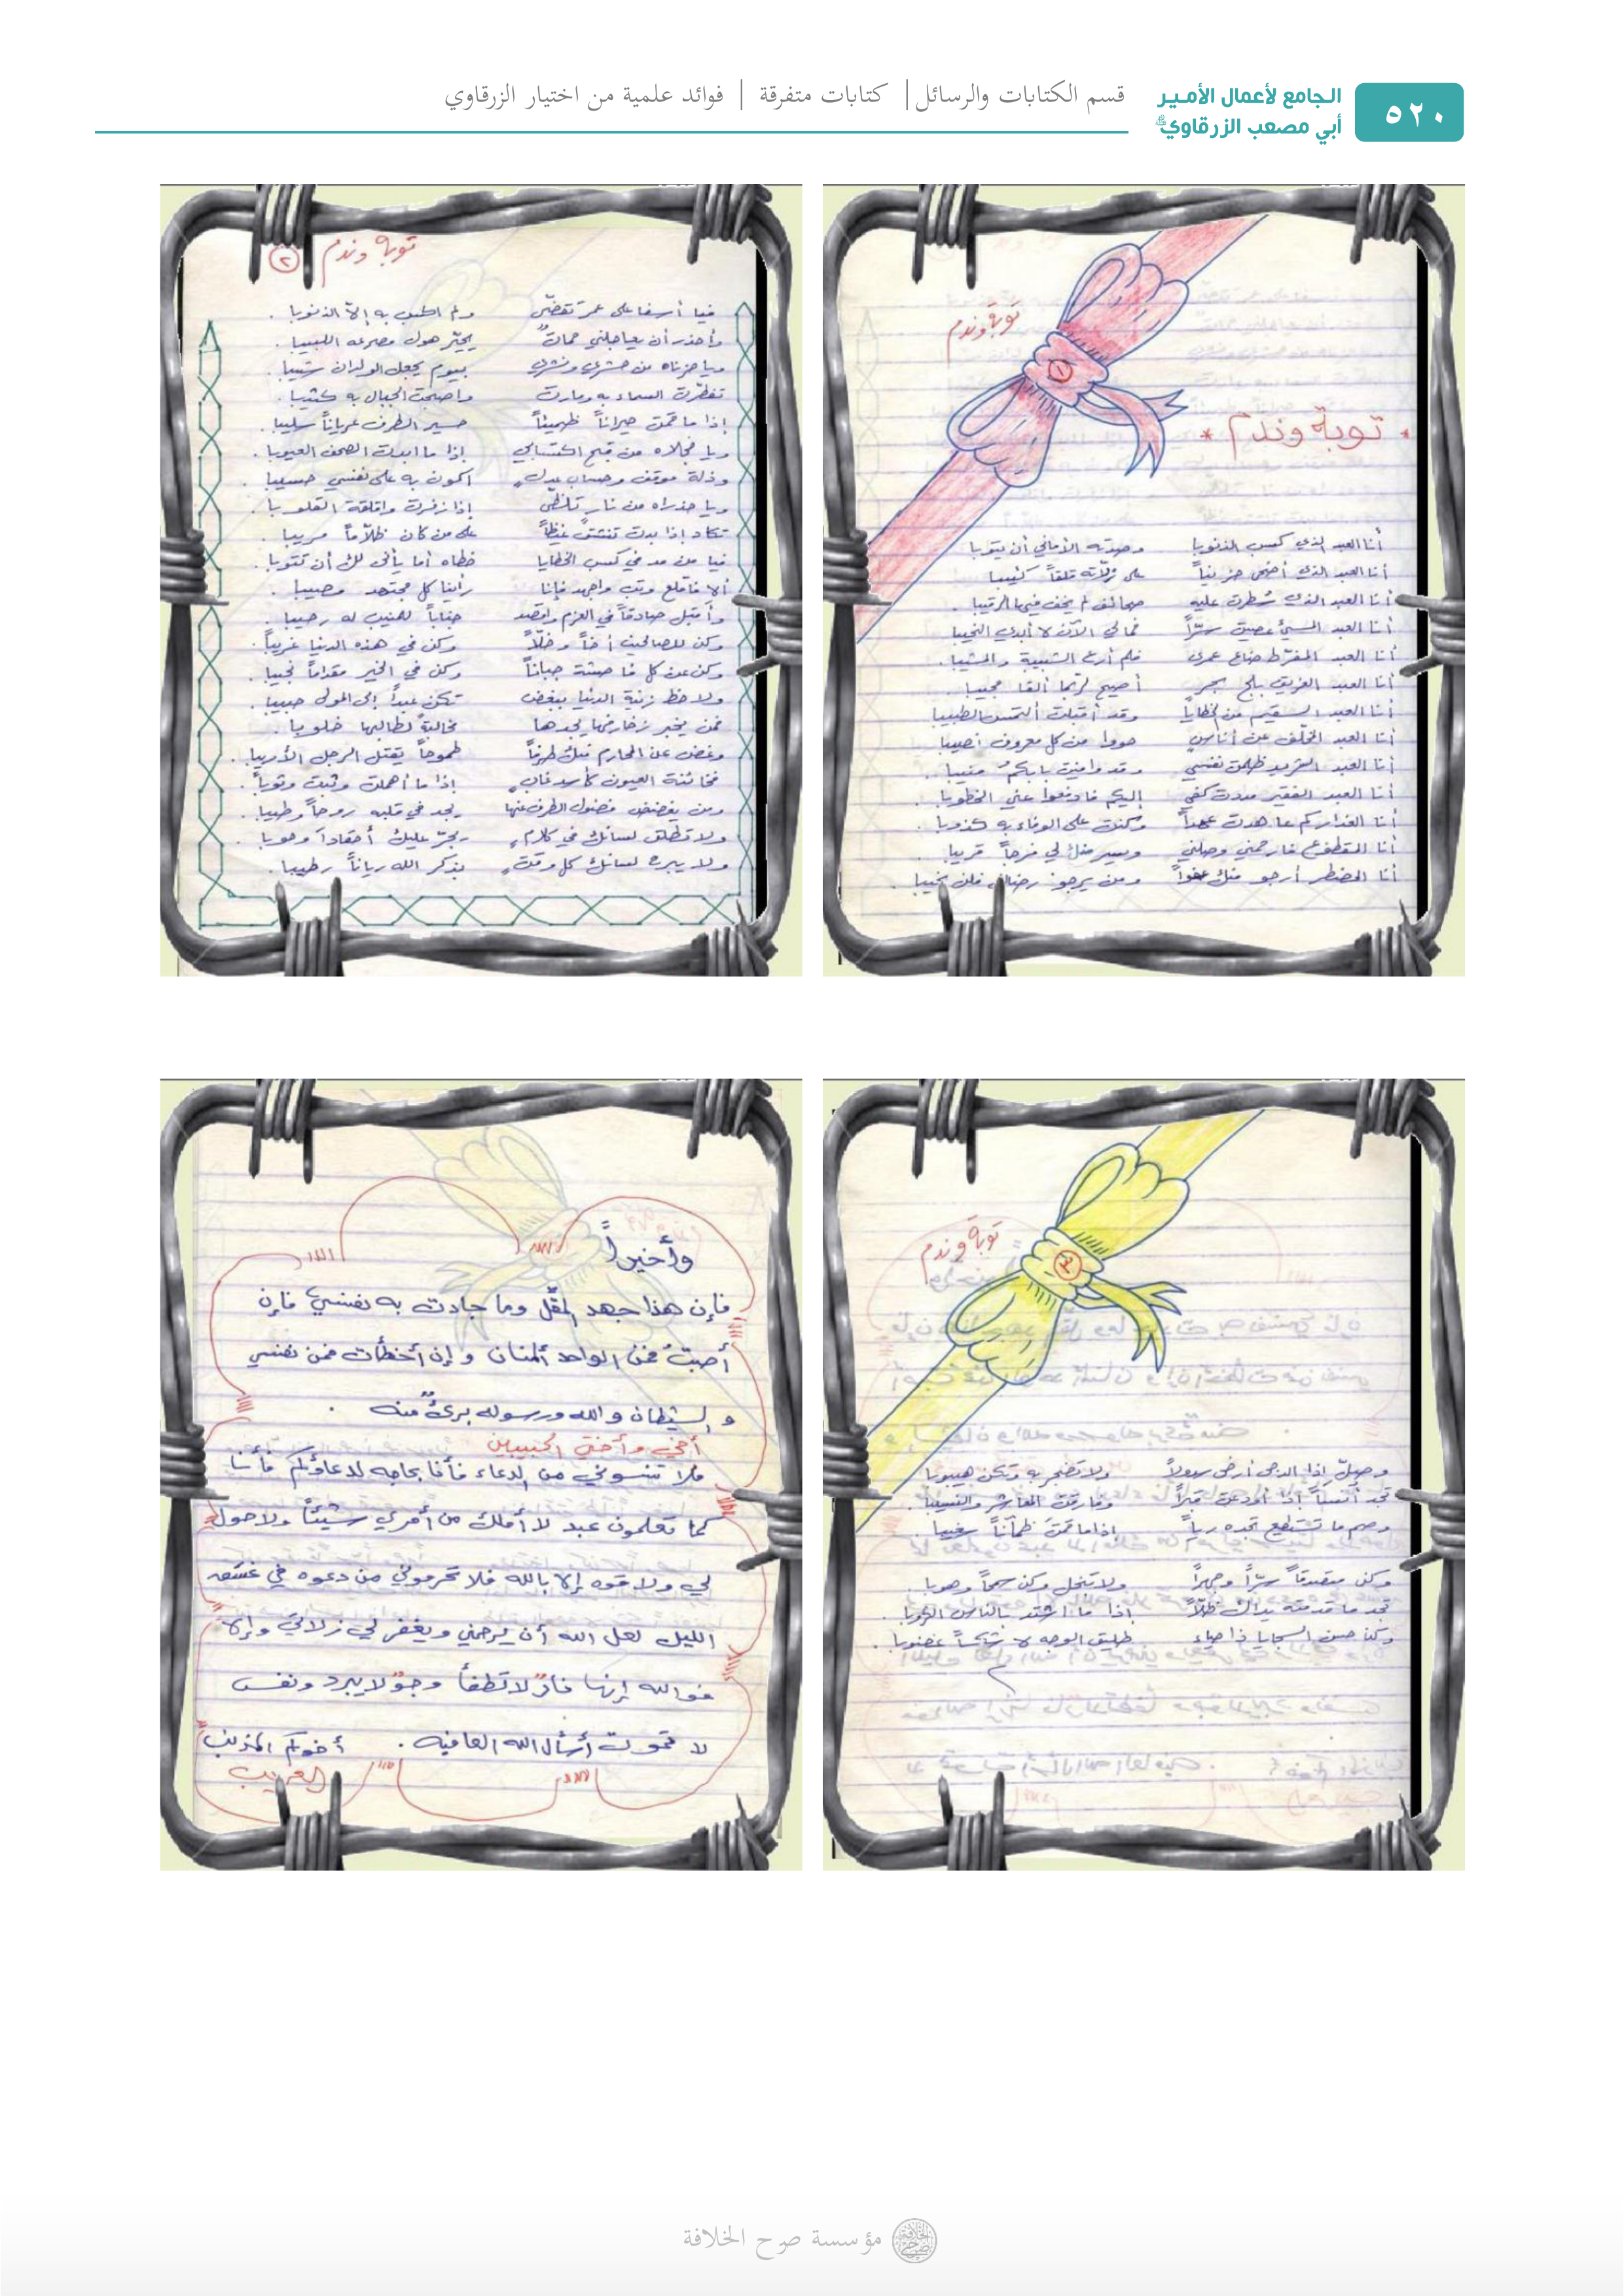 ٥٢٠
الجامع لأعمال الأمير
أبي مصعب الزرقاوي
قسم الكتابات والرسائل | كتابات متفرقة | فوائد علمية من اختيار الزرقاوي
توبة وندم
١
* توبة وندم *
أنا العبد الذي كسب الذنوبا وصدته الأماني أن يتوبا
أنا العبد الذي أضحى حزيناً على زلاته قلقاً كئيبا
أنا العبد الذي سُطرت عليه صحائف لم يخف فيها الرقيبا .
أنا العبد المسيئ عصيت سرّاً فمالي الآن لا أبدي النحيبا
أنا العبد المفرّط ضاع عمري فلم أرع الشبيبة والمشيبا .
أنا العبد الغريق بلج بحرٍ أصيح لربما ألقا مجيبا .
أنا العبد السقيم من الخطايا وقد أقبلت ألتمس الطبيبا
أنا العبد المخلّف عن أناسٍ حووا من كل معروف نصيبا
أنا العبد الشريد ظلمت نفسي وقد وافيت بابكمُ منيبا .
أنا العبد الفقير مددت كفي إليكم فادفعوا عني الخطوبا
أنا الغدار كم عاهدت عهداً وكنت على الوفاء به كذوبا .
أنا المقطوع فارحمني وصلني ويسر منك لي فرجاً قريبا .
أنا المضطر أرجو منك عفواً ومن يرجو رضاك فلن يخيبا .
توبة وندم ٢
فيا أسفا على عمر تقضّى ولم اكسب به إلاّ الذنوبا .
وأحذر أن يعاجلني ممات يحيّر هول مصرعه اللبيبا .
ويا حزناه من حشري ونشري بيوم يجعل الولدان شيبا .
تفطّرت السماء به ومارت واصبحت الجبال به كثيبا .
إذا ما قمت حيراناً ظميئاً حسير الطرف عرياناً سليبا .
ويا خجلاه من قبح اكتسابي إذا ما ابدت الصحف العيوبا .
وذلة موقف وحساب عدلٍ اكون به على نفسي حسيبا .
ويا حذراه من نارٍ تلظّى إذا زفرت واقلقة القلوبا .
تكاد إذا بدت تنشق غيظاً على من كان ظلاّماً مريبا .
فيا من مد في كسب الخطايا خطاه أما يأنى لك أن تتوبا .
ألا فاقلع وتب واجهد فإنا رأينا كل مجتهد مصيبا .
وأقبل صادقاً في العزم واقصد جناباً للمنيب له رحيبا .
وكن للصالحين أخاً وخلّاً وكن في هذه الدنيا غريباً .
وكن عن كل فاحشة جباناً وكن في الخير مقداماً نجيبا .
ولاحظ زينة الدنيا ببغض تكن عبداً إلى المولى حبيبا .
فمن يخبر زخارفها يجدها مخالبةً لطالبها خلوبا .
وغض عن المحارم منك طرفاً طموحاً يفتل الرجل الأريبا .
فخائنة العيون كأسد غابٍ إذا ما أهملت وثبت وثوباً .
ومن يغضض فضول الطرف عنها يجد في قلبه روحاً وطيبا .
ولا تطلق لسانك في كلام يجرّ عليك أحقاداً وحوبا .
ولا يبرح لسانك كل وقتٍ بذكر الله رياناً رطيبا .
توبة وندم
٣
وصلّ إذا الدجى أرخى سدولاً ولا تضجر به وتكن هيبوبا
تجد أنساً إذا أودعت قبراً وفارقت المعاشر والنسيبا .
وصم ما تستطيع تجده رياً إذا ما قمتَ ظمآناً سغيبا .
وكن متصدقاً سرّاً وجهراً ولا تبخل وكن سمحاً وهوبا .
تجد ما قدمته يداك ظلّاً إذا ما اشتد بالناس الكروبا .
وكن حسن السجايا ذا حياء طليق الوجه لا شكساً غضوبا .
وأخيراً
فإن هذا جهد المقّل وما جادت به نفسي فإن
أصبتُ فمن الواحد المنان وإن أخطأت فمن نفسي
والشيطان والله ورسوله برئٌ منه .
أخي وأختي الحبيبين
فلا تنسوني من الدعاء فأنا بحاجه لدعاؤكم فأنا
كما تعلمون عبد لا أملك من أمري شيئاً ولا حول
لي ولا قوه إلا بالله فلا تحرموني من دعوه في غسق
الليل لعل الله أن يرحمني ويغفر لي زلاتي وإلا
فوالله إنها نارٌ لا تطفأ وجوٌ لا يبرد ونفس
لا تموت أسأل الله العافيه . أخوكم المذنب
الغريب
مؤسسة صرح الخلافة